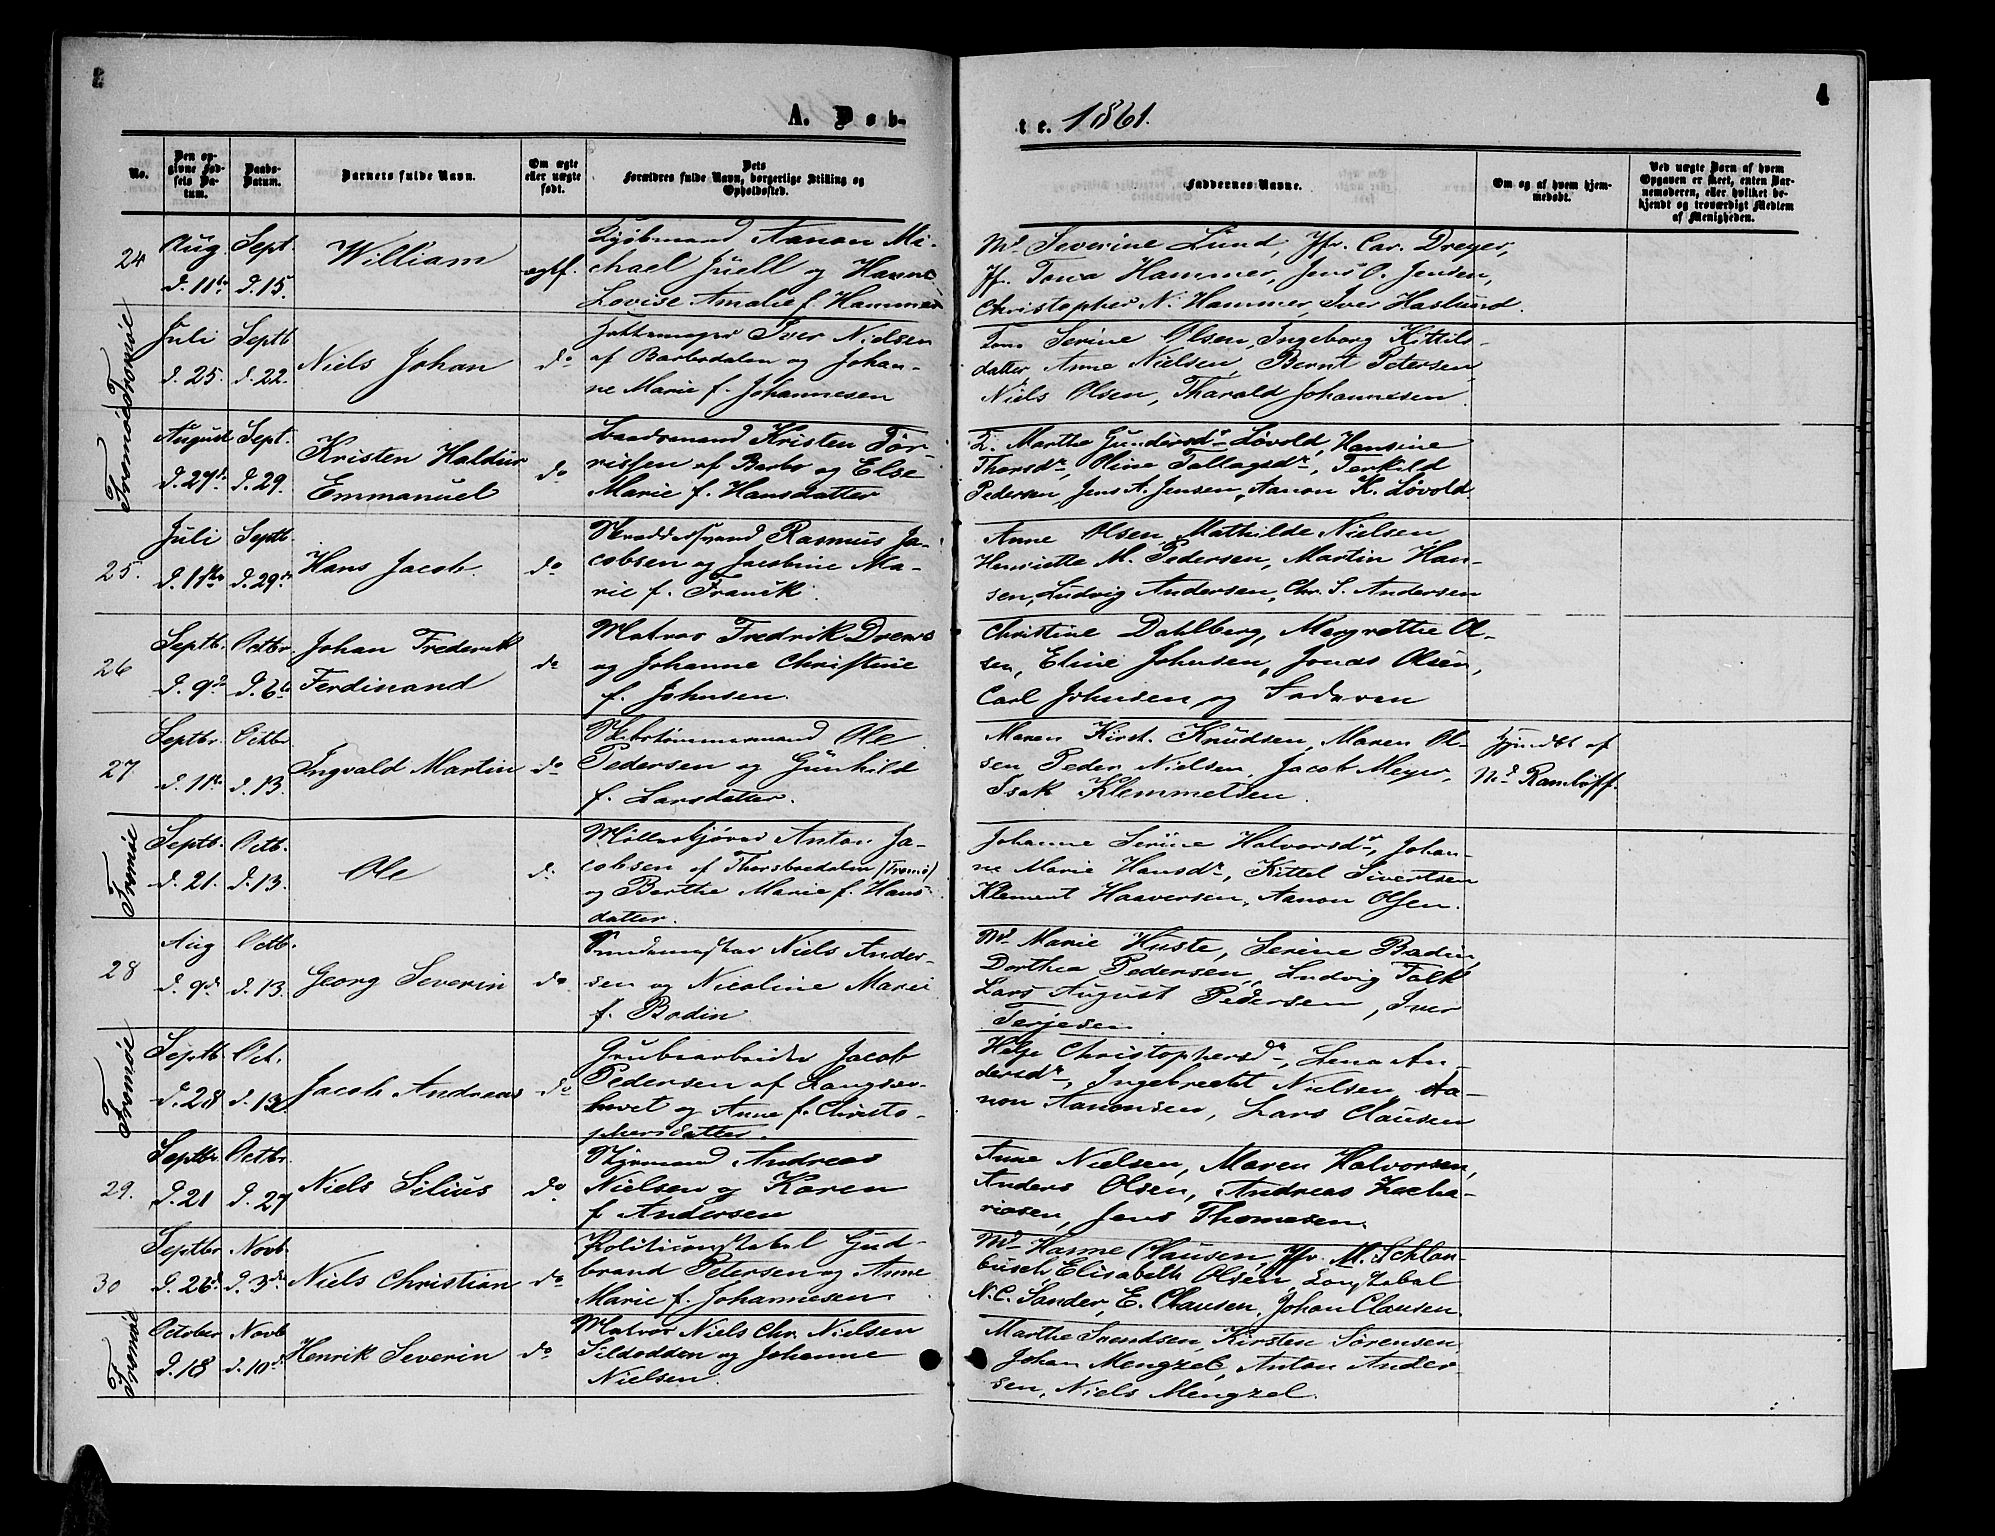 4
A. Døb-
te. 1861.
No.
Den op-
givne Fød-
sels Da-
tum.
Daabs-
Datum.
Barnets fulde Navn.
Om ægte
eller uægte
født.
Dets
Forældres fulde Navn, borgerlige Stilling og
Opholdssted.
Faddernes Navne.
Om og af hvem hjem-
medøbt.
Ved uægte Børn af hvem
Opgaven er skeet, enten Bar-
nemoderen, eller hvilket be-
kjendt og troværdigt Medlem
af Menigheden.
24
Aug
d. 11te
Sept
d. 15.
William
ægtf.
Kjøbmand Aanon Mi-
chael Juell og Hanne
Lovise Amalie f. Hammer
Md Severine Lund, Jfr. Car. Dreyer,
Jf. Tona Hammer, Jens O. Jensen,
Christopher N. Hammer, Iver Haslund.
Tromøe
Juli
d. 25.
Septb
d. 22.
Niels Johan
do
Iver Nielsen
af Barbodalen og Johan-
ne Marie f. Johannesen
Serine Olsen, Ingeborg Kittils-
datter, Anne Nielsen, Bernt Petersen,
Niels Olsen, Tharald Johannesen.
Tromøe
August
d. 27de
Sept.
d. 29.
Kristen Haldur
Emmanuel
do
Kristen Tor-
rissen af Barbo og Else
Marie f. Hansdatter
Marthe Gundersdr Løvold, Hansine
Thorsdr, Oline Tallagsdr, Terkild
Pedersen, Jens A. Jensen, Aanon K. Løvold.
25.
Juli
Septb.
d. 29de
Hans Jacob.
do
Rasmus Ja-
cobsen og Jacobine Ma-
rie f. Franck.
Anne Olsen, Mathilde Nielsen
Henriette M. Pedersen, Martin Han-
sen, Ludvig Andersen, Chr. S. Andersen
26
Septb.
d. 9de
Octbr.
d. 6te
Johan Frederik
Ferdinand
do
Matros Fredrik Drews
og Johanne Christine
f. Johnsen.
Christine Dahlberg, Margrethe Ol-
sen, Eline Johnsen, Jonas Olsen,
Carl Johnsen og Faderen
27
Septbr.
d. 11te
Octbr.
d. 13.
Ingvald Martin
do
Skibstømmermand Ole
Pedersen og Gunhild
f. Larsdatter.
Maren Kirst. Knudsen, Maren Ol-
sen, Peder Nielsen, Jacob Meyer,
Isak Klemmetsen.
Hjmdbt af
Md Ramløff.
Tromøe
Septb.
d. 21.
Octb.
d. 13.
Ole
do
Anton Ja-
cobsen af Thorsbrodalen (Tromø)
og Berthe Marie f. Hans-
datter.
Johanne Serine Halvorsdr, Johan-
ne Marie Hansdr, Kittel Sivertsen
Klement Haaversen, Aanon Olsen.
28
Aug
d. 9de
Octb.
d. 13.
Georg Severin
do
Niels Ander-
sen og Nicoline Marie
f. Bodin.
Md Marie Huste, Serine Bodin,
Dorthea Pedersen, Ludvig Falk
Lars August Pedersen, Iver
Terjesen
Tromøe
Septb
d. 28
Oct.
d. 13
Jacob Andreas
do
Grubearbeider Jacob
Pedersen af Langsæ-
hovet og Anne f. Christo-
phersdatter.
Helje Christophersdr, Lena An-
dersdr, Ingebrecht Nielsen, Aa-
non Aanonsen, Lars Clausen
29.
Septbr
d. 21
Octbr.
d. 27
Niels Silius
do
Styrmand Andreas
Nielsen og Karen
f. Andersen
Anne Nielsen, Maren Halvorsen,
Anders Olsen, Andreas Zacha-
riasen, Jens Thomesen.
30
Septbr
d. 26de
Novb.
d. 3de
Niels Christian
do
Politiconstabel Gud-
brand Petersen og Anne
Marie f. Johannesen.
Md Hanne Clausen, Jfr. M. Schlan-
busch, Elisabeth Olsen,
N. C. Sander, E. Clausen, Johan Clausen.
Tromøe
October
d. 18
Novb
d. 10de
Henrik Severin
do
Matros Niels Chr. Nielsen
Sildodden og Johanne
Nielsen.
Marthe Svendsen, Kirsten Sørensen,
Johan Mengzel, Anton Ander-
sen, Niels Mengzel.